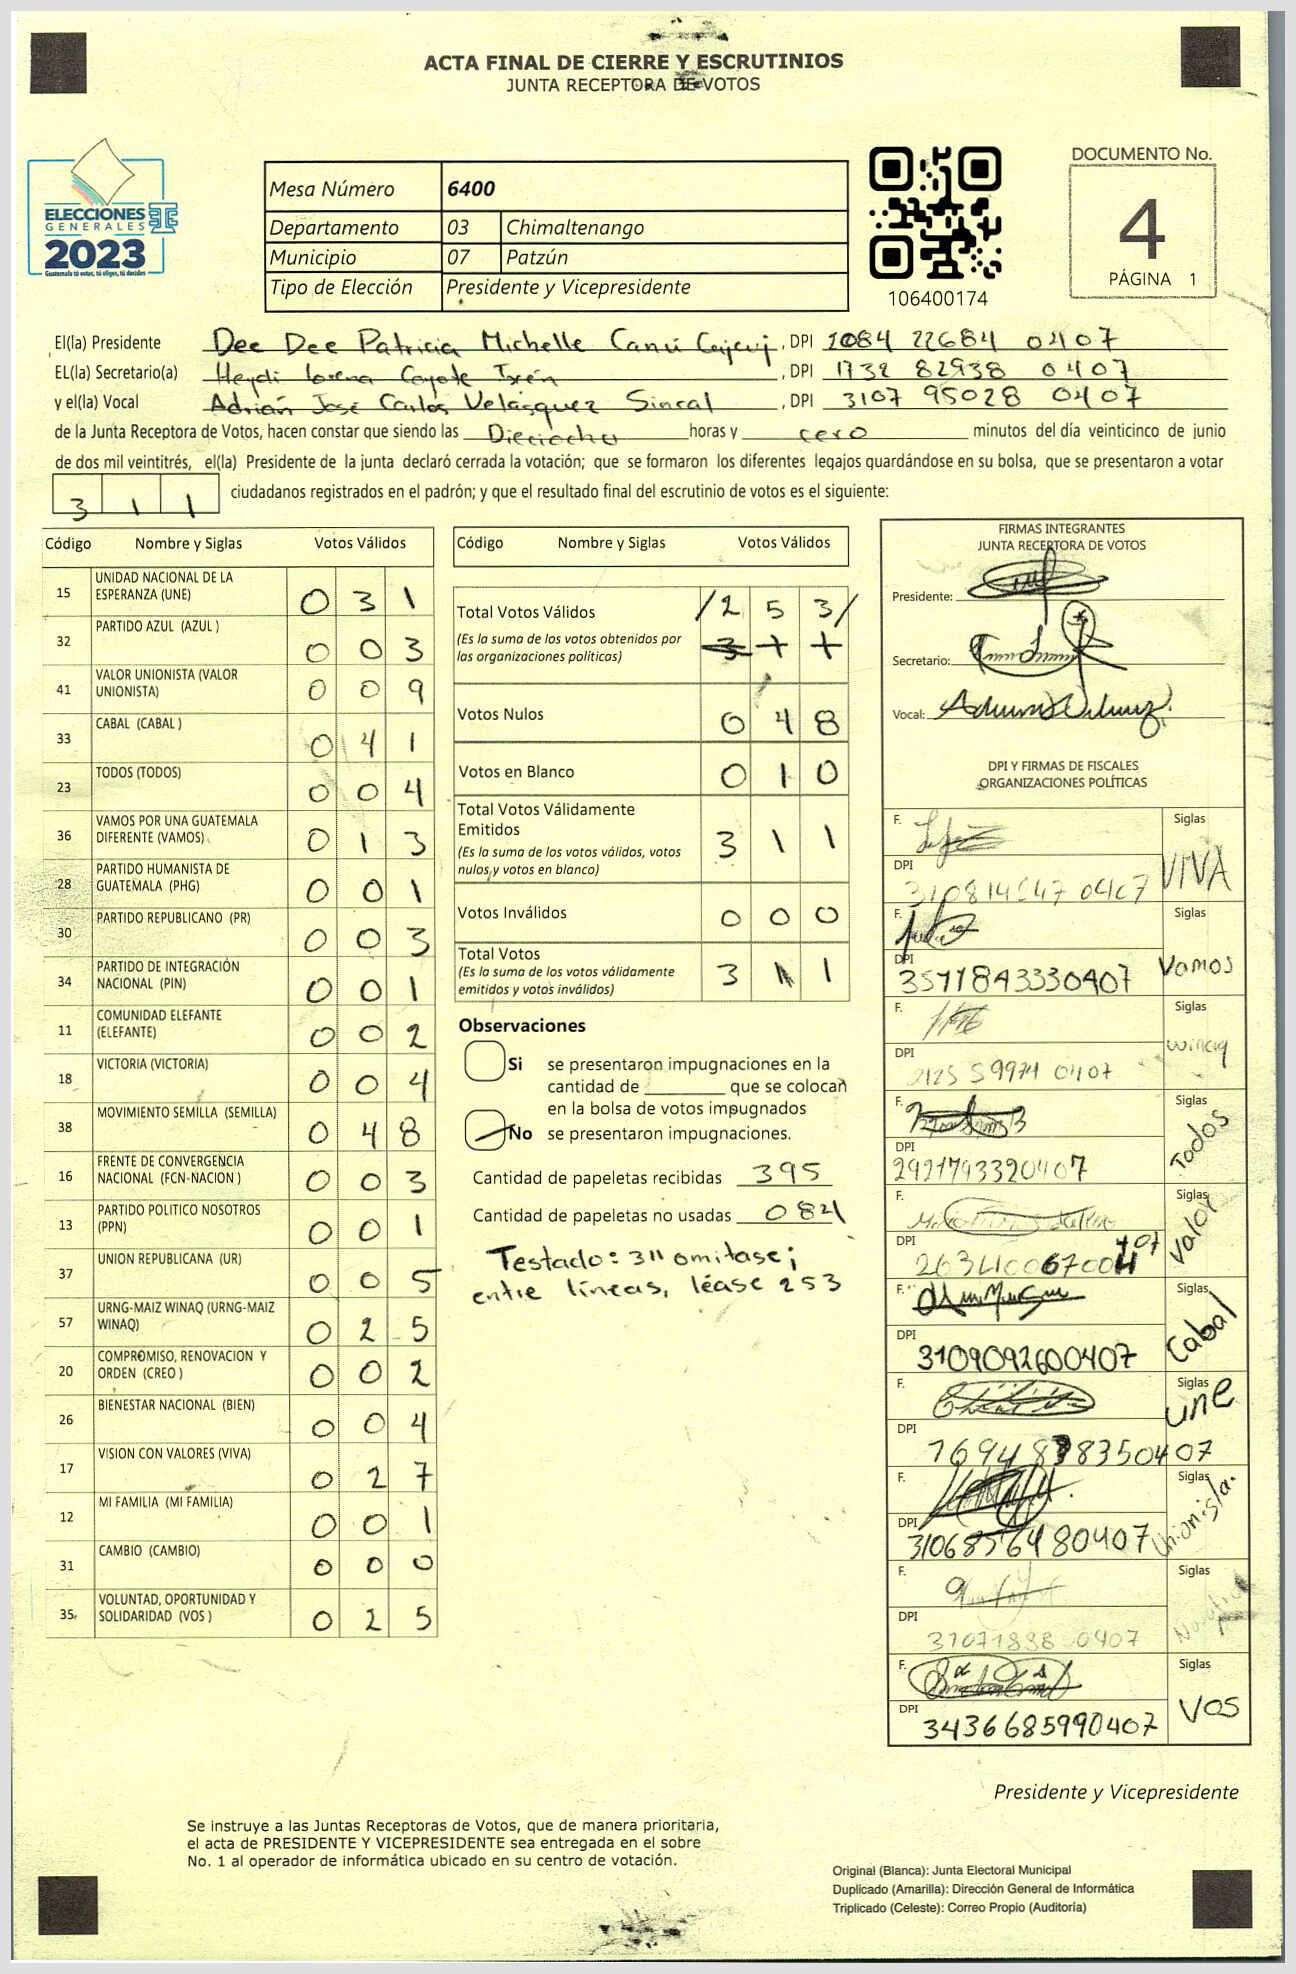 ACTA FINAL DE CIERRE Y ESCRUTINIOS
JUNTA RECEPTORA DE VOTOS
ELECCIONES
GENERALES
2023
Guatemala tú votas, tú eliges, tú decides
Mesa Número 6400
Departamento 03 Chimaltenango
Municipio 07 Patzún
Tipo de Elección Presidente y Vicepresidente
106400174
DOCUMENTO No.
4
PÁGINA 1
El(la) Presidente Dee Dee Patricia Michelle Canú, DPI 2084 22684 0407
EL(la) Secretario(a) Heydi Lorena Coyote Ixén, DPI 1732 82938 0407
y el(la) Vocal Adrián José Carlos Velásquez Sincal, DPI 3107 95028 0407
de la Junta Receptora de Votos, hacen constar que siendo las Dieciocho horas y cero minutos del día veinticinco de junio
de dos mil veintitrés, el(la) Presidente de la junta declaró cerrada la votación; que se formaron los diferentes legajos guardándose en su bolsa, que se presentaron a votar
311 ciudadanos registrados en el padrón; y que el resultado final del escrutinio de votos es el siguiente:
Código Nombre y Siglas Votos Válidos
15 UNIDAD NACIONAL DE LA ESPERANZA (UNE) 0 3 1
32 PARTIDO AZUL (AZUL ) 0 0 3
41 VALOR UNIONISTA (VALOR UNIONISTA) 0 0 9
33 CABAL (CABAL ) 0 4 1
23 TODOS (TODOS) 0 0 4
36 VAMOS POR UNA GUATEMALA DIFERENTE (VAMOS) 0 1 3
28 PARTIDO HUMANISTA DE GUATEMALA (PHG) 0 0 1
30 PARTIDO REPUBLICANO (PR) 0 0 3
34 PARTIDO DE INTEGRACIÓN NACIONAL (PIN) 0 0 1
11 COMUNIDAD ELEFANTE (ELEFANTE) 0 0 2
18 VICTORIA (VICTORIA) 0 0 4
38 MOVIMIENTO SEMILLA (SEMILLA) 0 4 8
16 FRENTE DE CONVERGENCIA NACIONAL (FCN-NACION ) 0 0 3
13 PARTIDO POLITICO NOSOTROS (PPN) 0 0 1
37 UNION REPUBLICANA (UR) 0 0 5
57 URNG-MAIZ WINAQ (URNG-MAIZ WINAQ) 0 2 5
20 COMPROMISO, RENOVACION Y ORDEN (CREO ) 0 0 2
26 BIENESTAR NACIONAL (BIEN) 0 0 4
17 VISION CON VALORES (VIVA) 0 2 7
12 MI FAMILIA (MI FAMILIA) 0 0 1
31 CAMBIO (CAMBIO) 0 0 0
35 VOLUNTAD, OPORTUNIDAD Y SOLIDARIDAD (VOS ) 0 2 5
Código Nombre y Siglas Votos Válidos
Total Votos Válidos /2 5 3/
(Es la suma de los votos obtenidos por
las organizaciones políticas)
Votos Nulos 0 4 8
Votos en Blanco 0 1 0
Total Votos Válidamente
Emitidos
(Es la suma de los votos válidos, votos
nulos y votos en blanco) 3 1 1
Votos Inválidos 0 0 0
Total Votos
(Es la suma de los votos válidamente
emitidos y votos inválidos) 3 1 1
Observaciones
Si se presentaron impugnaciones en la
cantidad de ________ que se colocan
en la bolsa de votos impugnados
No se presentaron impugnaciones.
Cantidad de papeletas recibidas 395
Cantidad de papeletas no usadas 084
Testado: 311 omitase;
entre líneas, léase 253
FIRMAS INTEGRANTES
JUNTA RECEPTORA DE VOTOS
Presidente:
Secretario:
Vocal:
DPI Y FIRMAS DE FISCALES
ORGANIZACIONES POLÍTICAS
F. Siglas
DPI VIVA
F. Siglas
DPI 3571843330407 Vamos
F. Siglas
DPI Winaq
F. Siglas
DPI 2921793320407 Todos
F. Siglas
DPI Valor
F. Siglas
DPI 3109092600407 Cabal
F. Siglas
DPI une
F. Siglas
DPI Unionista.
F. Siglas
DPI
F. Siglas
DPI 3436685990407 VOS
Presidente y Vicepresidente
Se instruye a las Juntas Receptoras de Votos, que de manera prioritaria,
el acta de PRESIDENTE Y VICEPRESIDENTE sea entregada en el sobre
No. 1 al operador de informática ubicado en su centro de votación.
Original (Blanca): Junta Electoral Municipal
Duplicado (Amarilla): Dirección General de Informática
Triplicado (Celeste): Correo Propio (Auditoría)